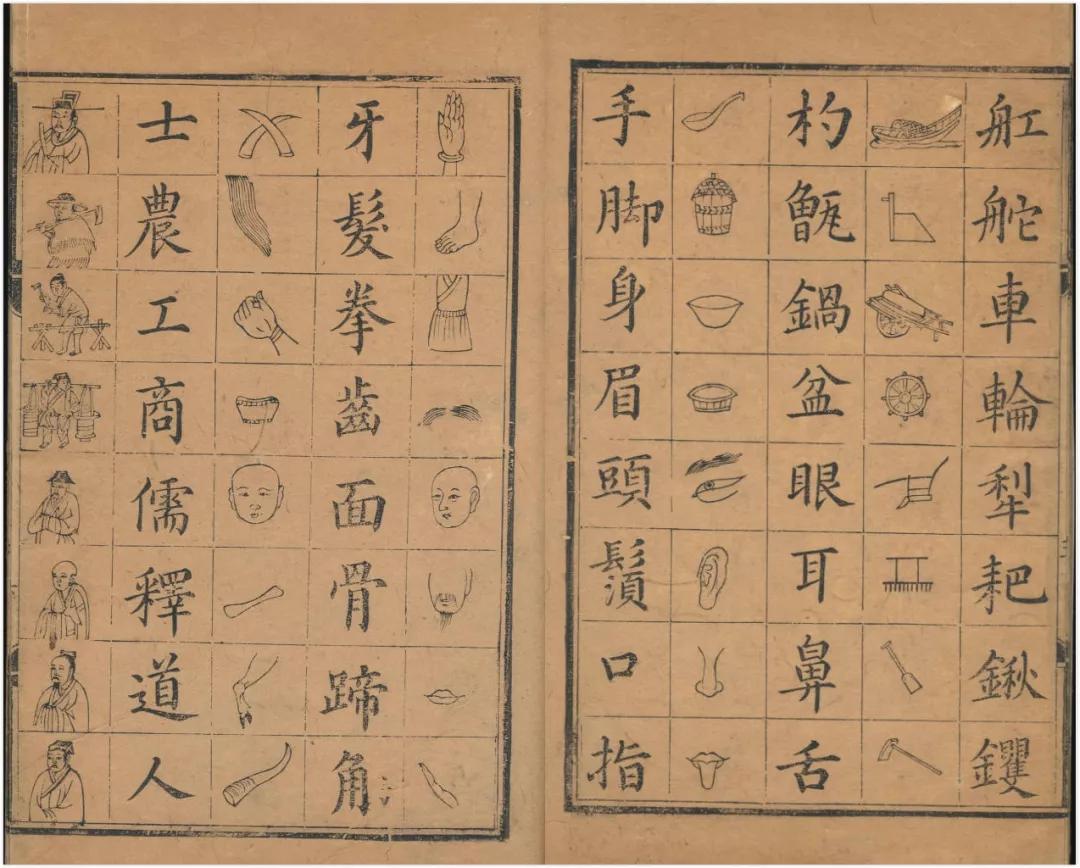 舡舵車輪犁耙鍬钁
杓甑鍋盆眼耳鼻舌
手脚身眉頭鬚口指
牙髮拳齒面骨蹄角
士農工商儒釋道人